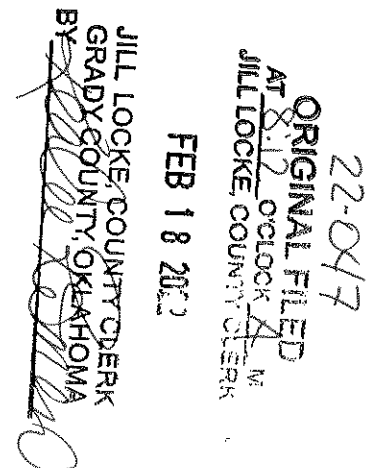 22-047
ORIGINAL FILED
AT 8:12 O'CLOCK A M
JILL LOCKE, COUNTY CLERK
FEB 18 202
JILL LOCKE, COUNTY CLERK
GRADY COUNTY, OKLAHOMA
BY